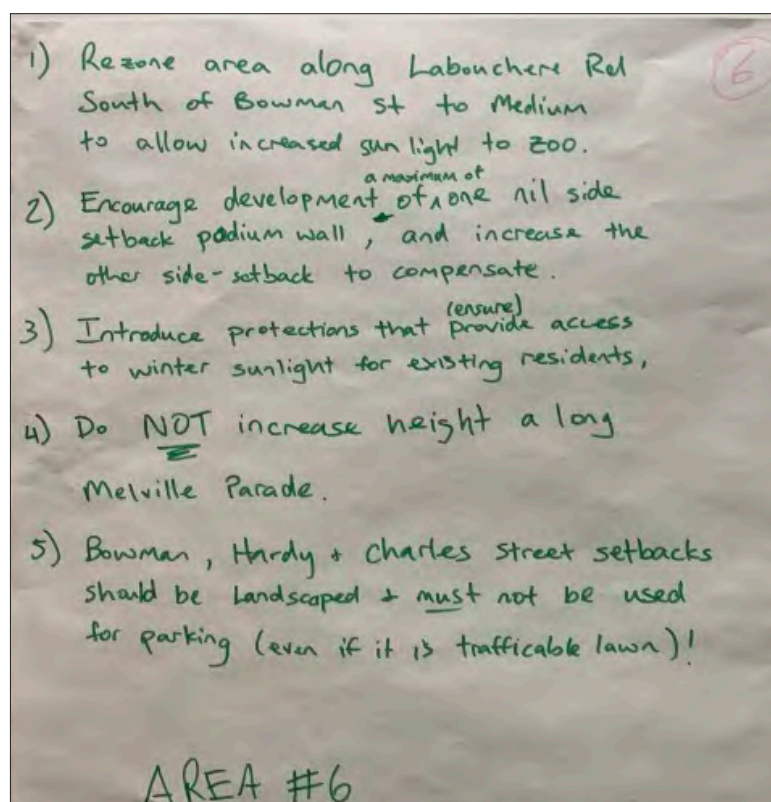 6
1) Rezone area along Labouchere Rd
South of Bowman st to Medium
to allow increased sun light to zoo.
a maximum of
2) Encourage development of ^ one nil side
setback podium wall, and increase the
other side-setback to compensate.
(ensure)
3) Introduce protections that provide access
to winter sunlight for existing residents,
4) Do NOT increase height a long
Melville Parade.
5) Bowman, Hardy + Charles Street setbacks
should be Landscaped + must not be used
for parking (even if it is trafficable lawn)!
AREA #6